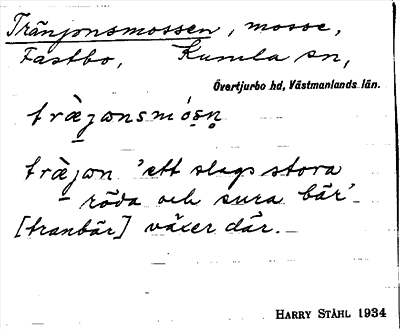 Tränjonsmossen, mosse,
Fastbo, Kumla sn,
Övertjurbo hd, Västmanlands län.
träjɷnsmósn̥
träjɷn 'ett slags stora
röda och sura bär'
[tranbär] växer där.
HARRY STÅHL 1934